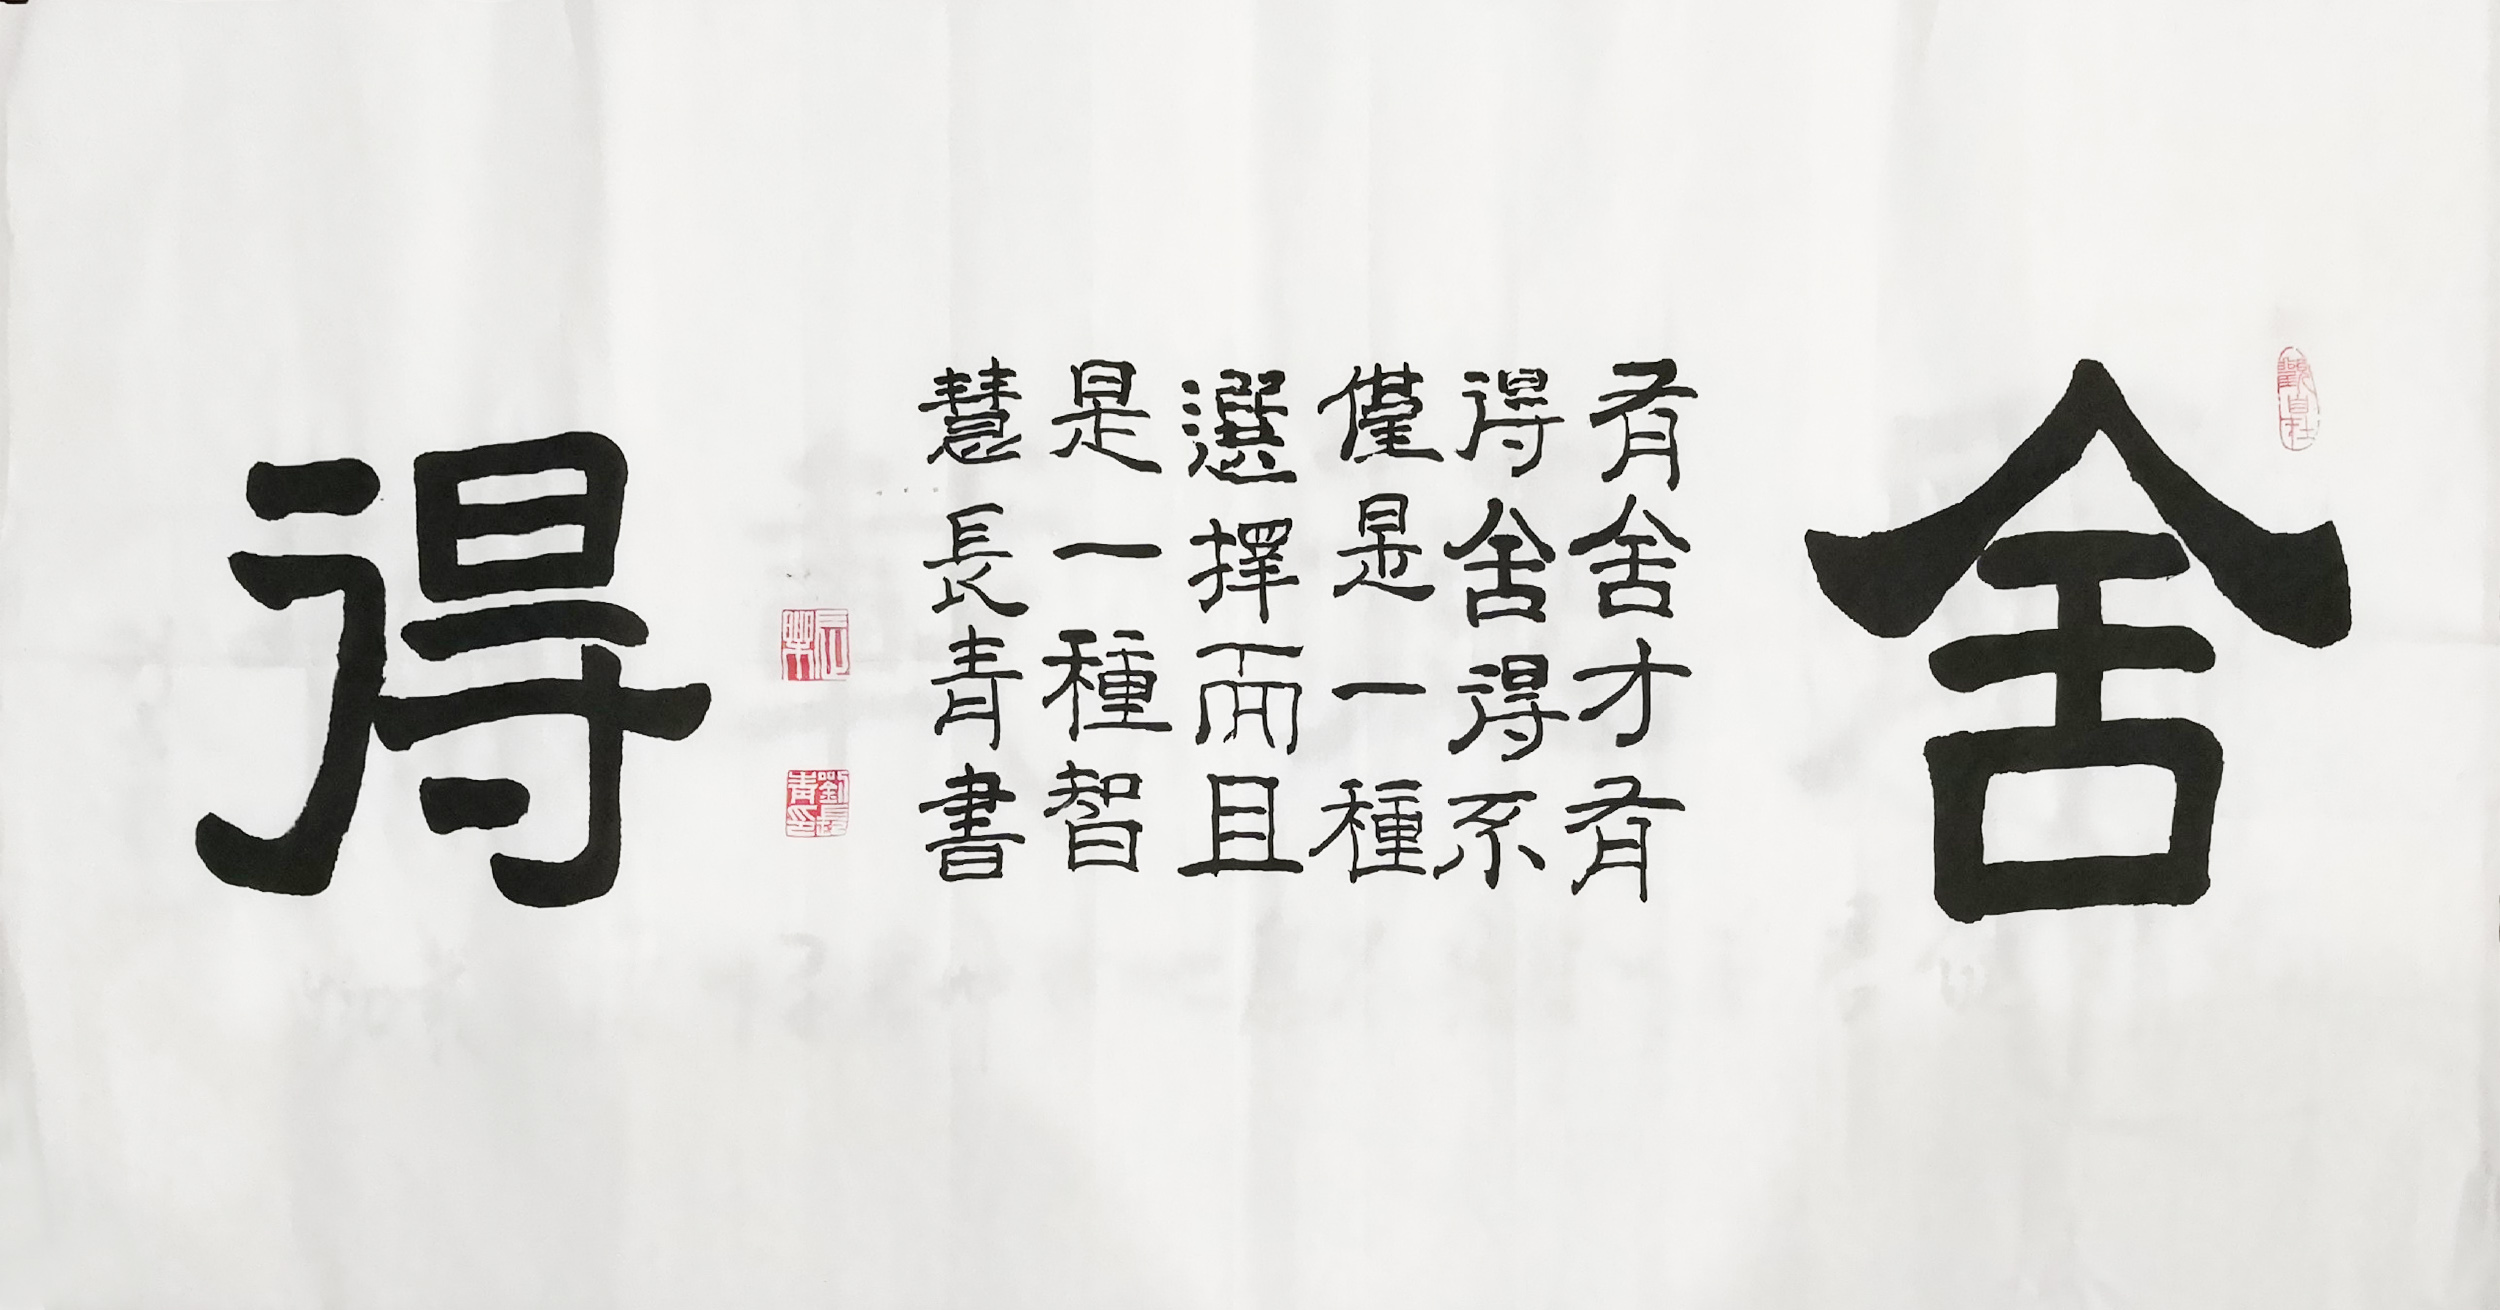 舍
有舍才有
得舍得不
僅是一種
選擇而且
是一種智
慧長青書
得
劉長青印